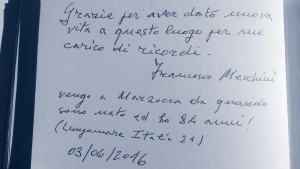 Grazie per aver dato nuova
vita a questo luogo per me
carico di ricordi.
Francesco Meschini
vengo a Marzocca da quando
sono nato ed ho 84 anni!
(Lungomare Italia 21)
03/06/2016